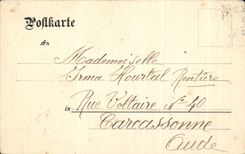 Postkarte
An
Mademoiselle
Irma Hourtal Rentière
in Rue Voltaire N° 40
Carcassonne
Aude